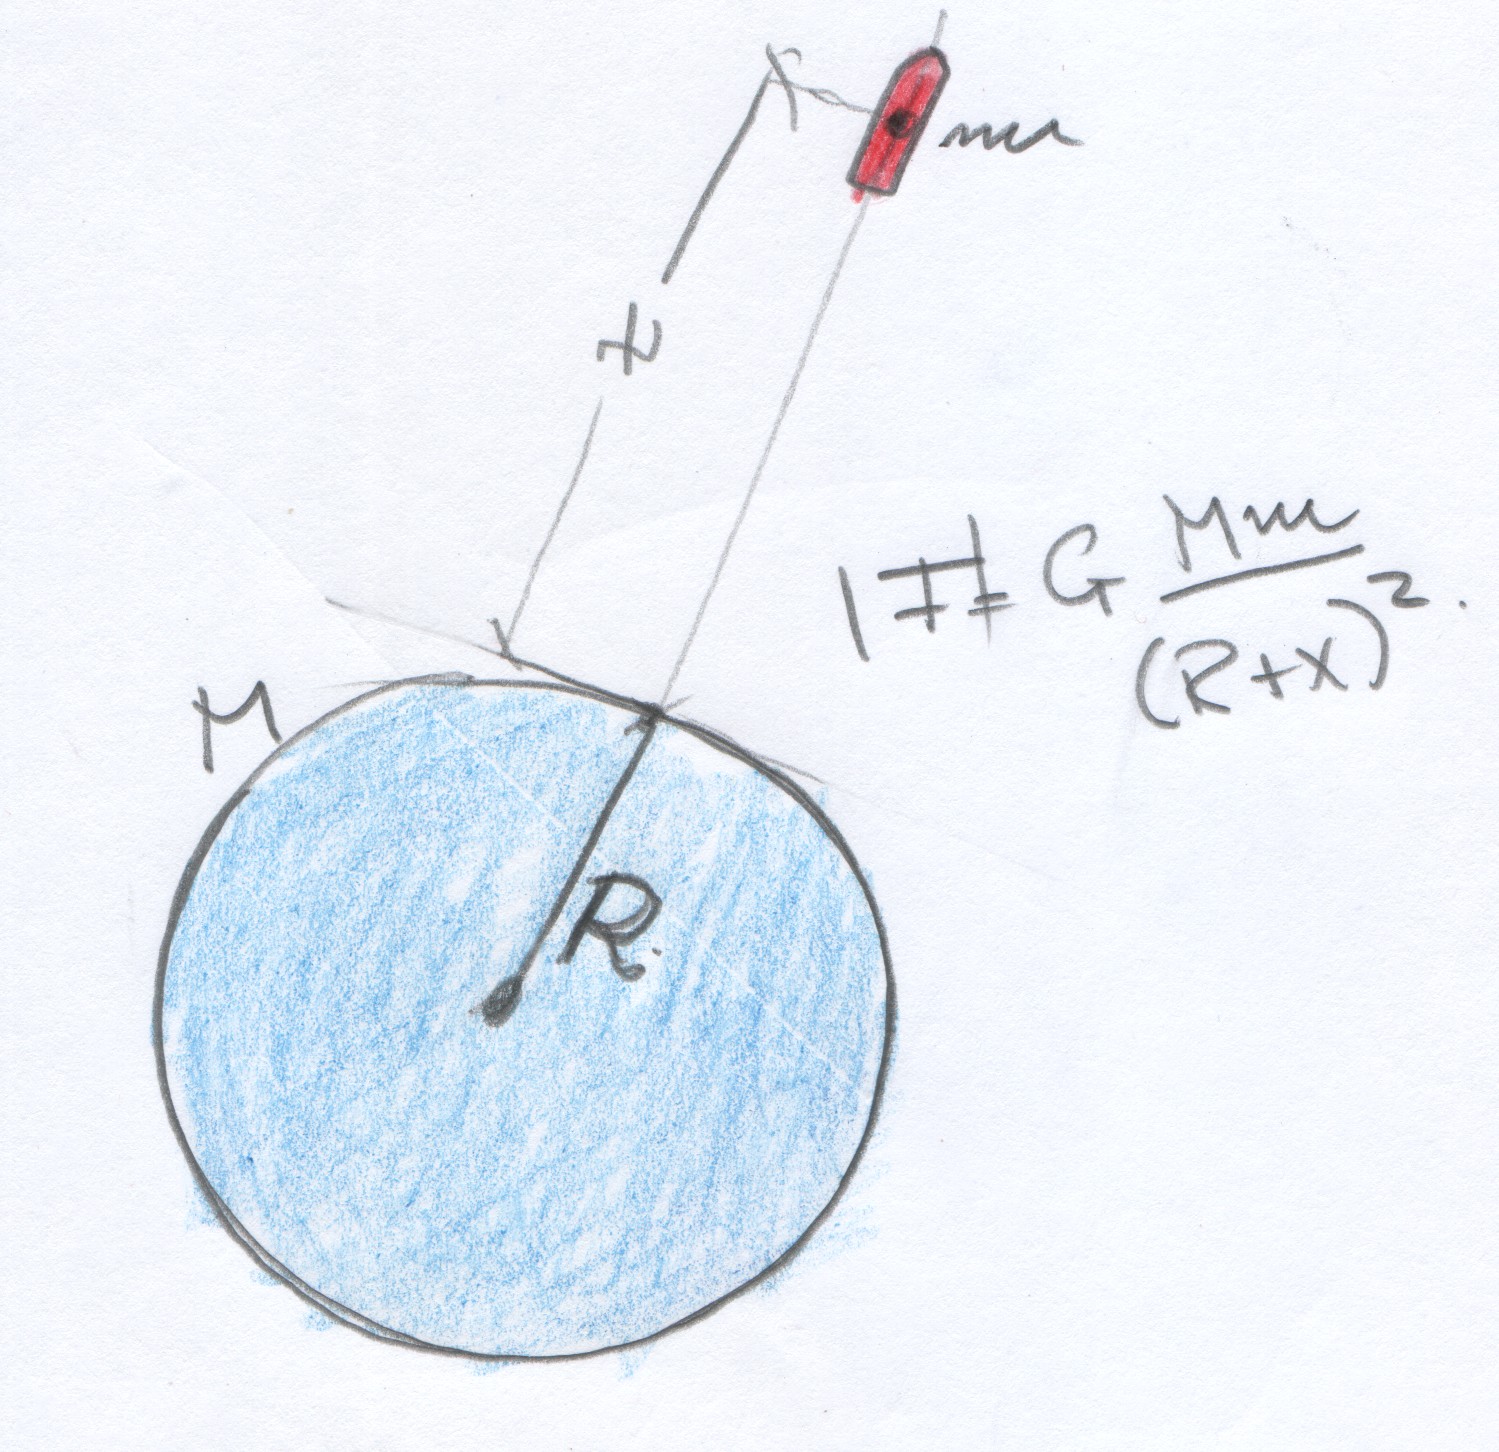 m
x
|F| = G Mm
(R+x)².
M
R.